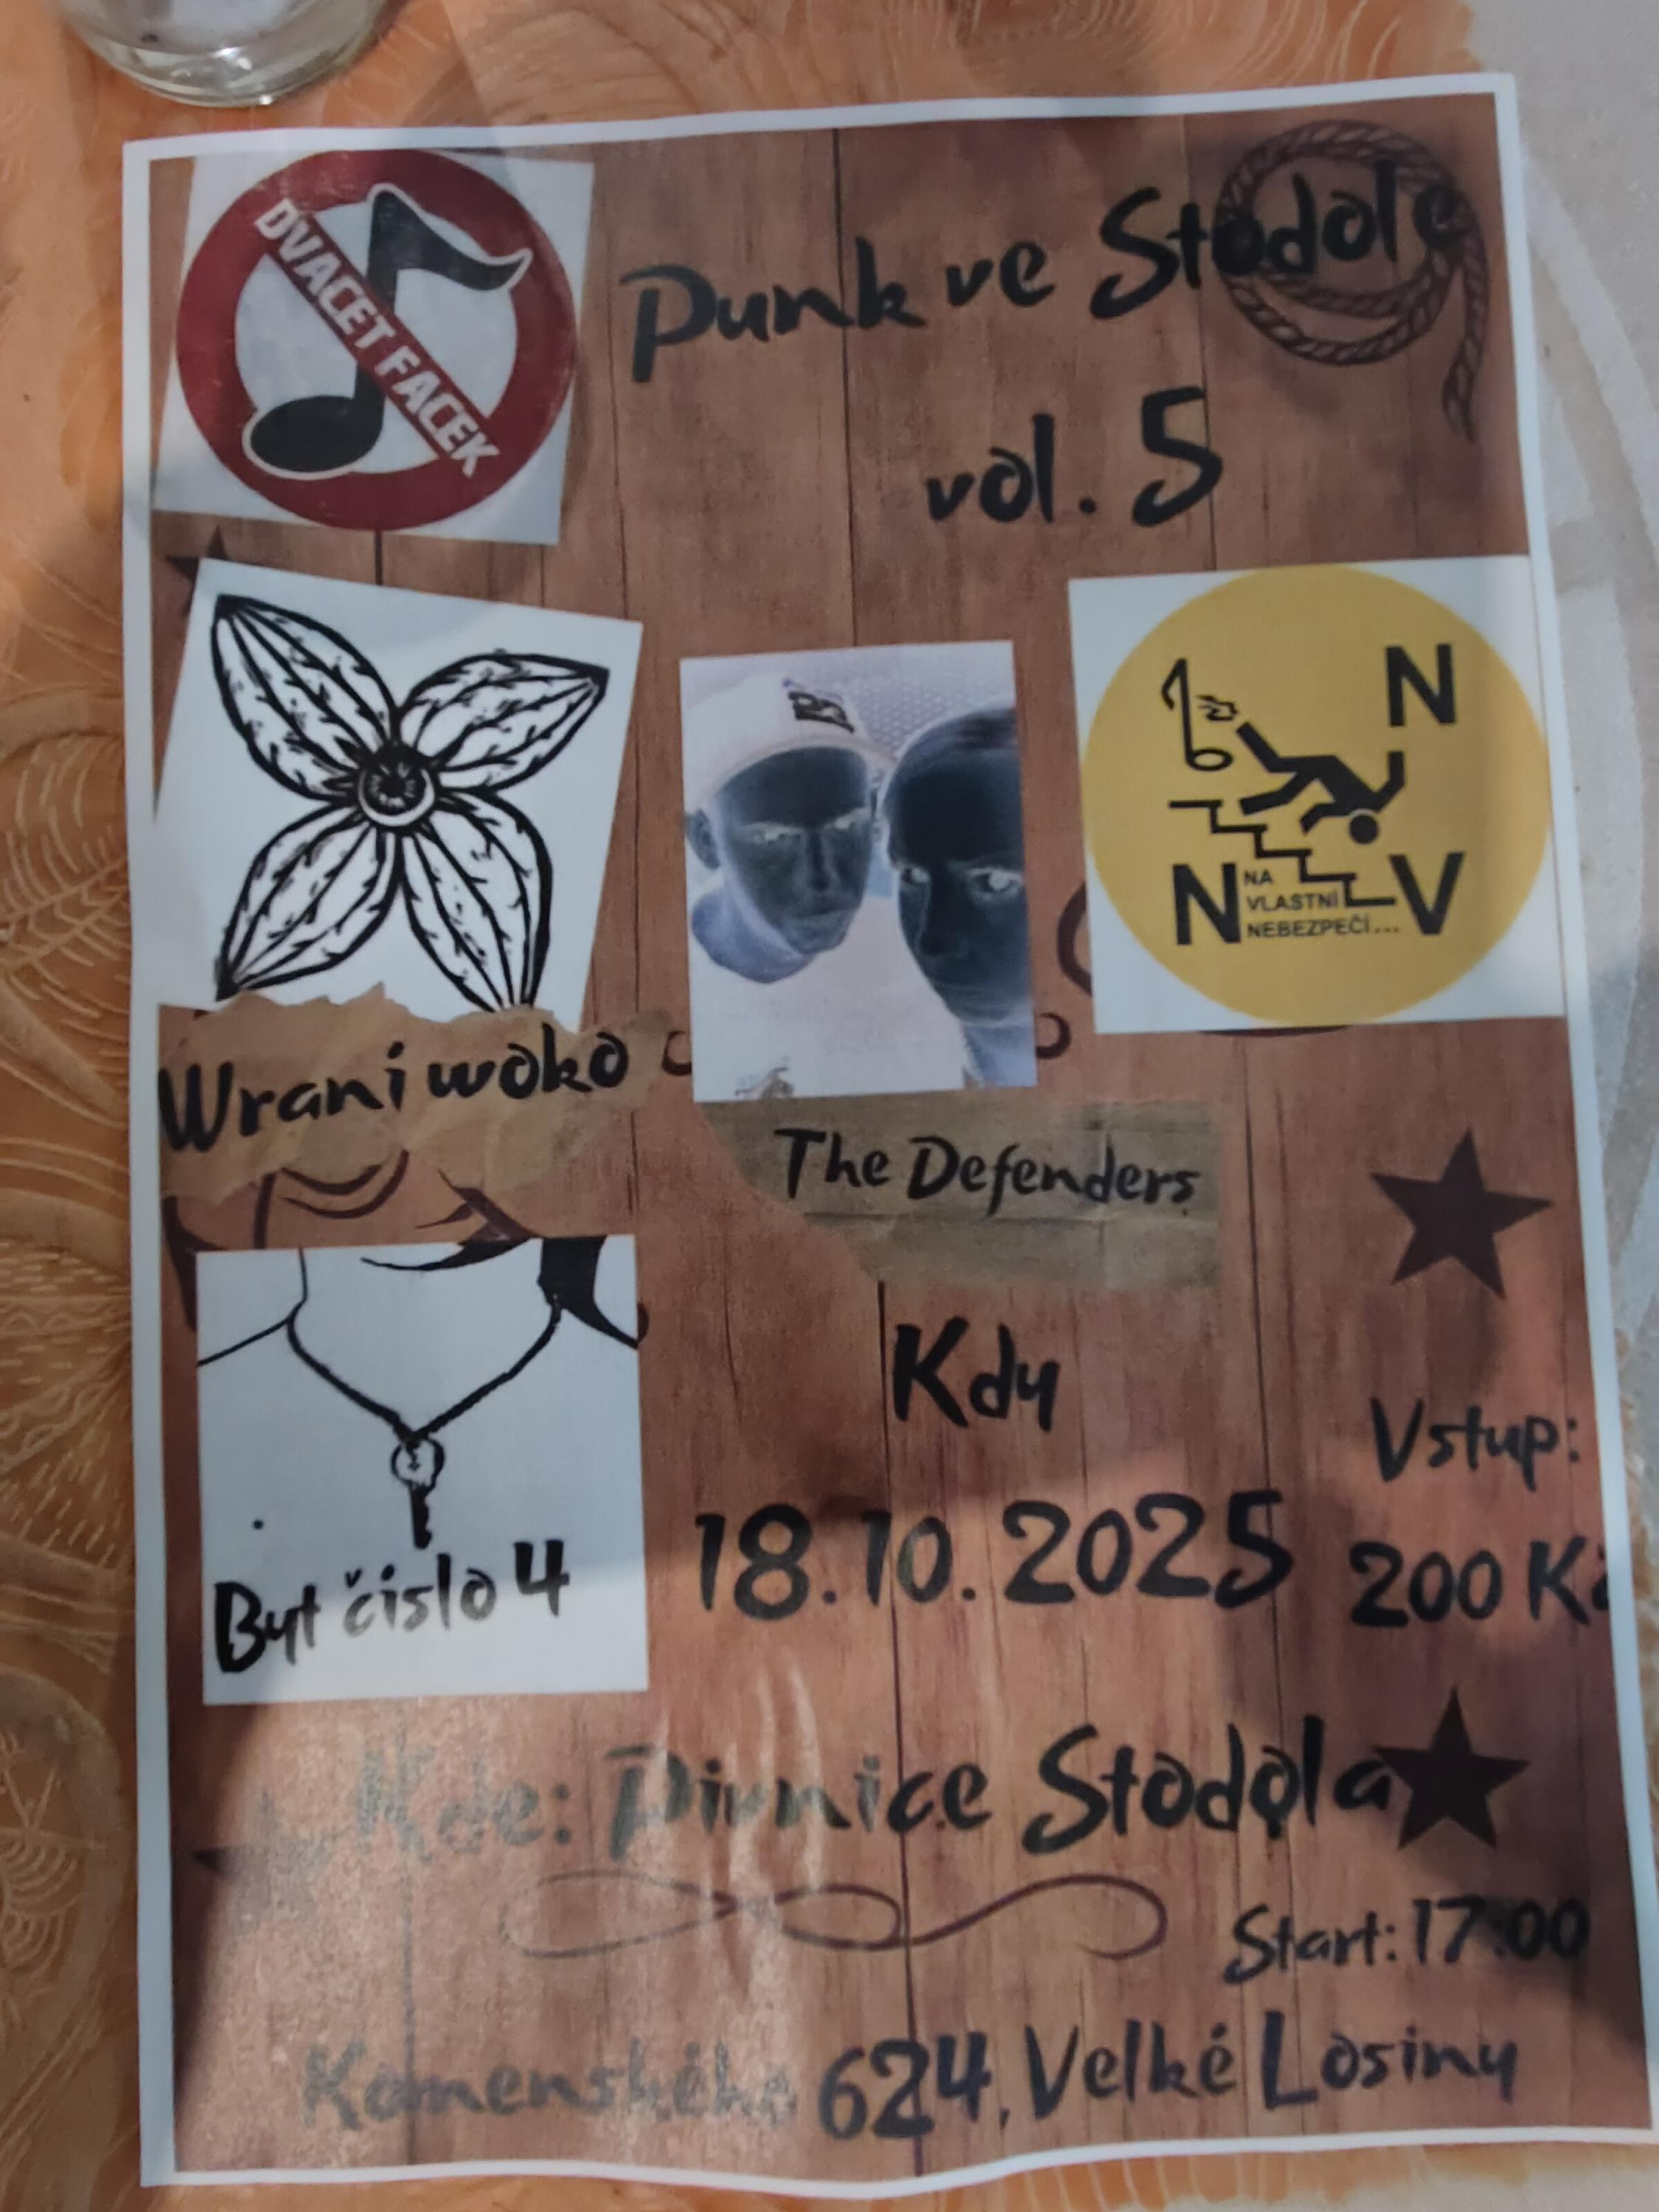 DVACET FACEK
Punk ve Stodole
vol. 5
N
N NA V
VLASTNÍ
NEBEZPEČÍ...
Wrani woko
The Defenders
Kdy
Vstup:
18.10.2025
200 Kč
Byt číslo 4
Kde: Pivnice Stodola
Start: 17:00
Komenského 624, Velké Losiny